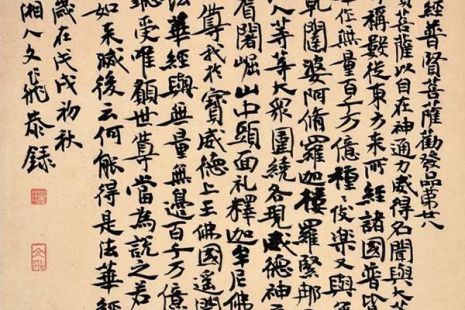 經普賢菩薩勸發品第廿八
賢菩薩以自在神通力威得名聞與大菩
稱數從東方來所經諸國普皆
作無量百千万億種種伎樂又與無
乾闥婆阿脩羅迦樓羅緊那
人等等大衆圍繞各現威德神
耆闍崛山中頭面礼釋迦牟尼佛
尊我於寶威德上王佛國遥聞
法華經與無量無邊百千万億
聽受唯願世尊當為説之若
如来滅後云何能得是法華經
歲在戊戌初秋
湘人文飛恭錄